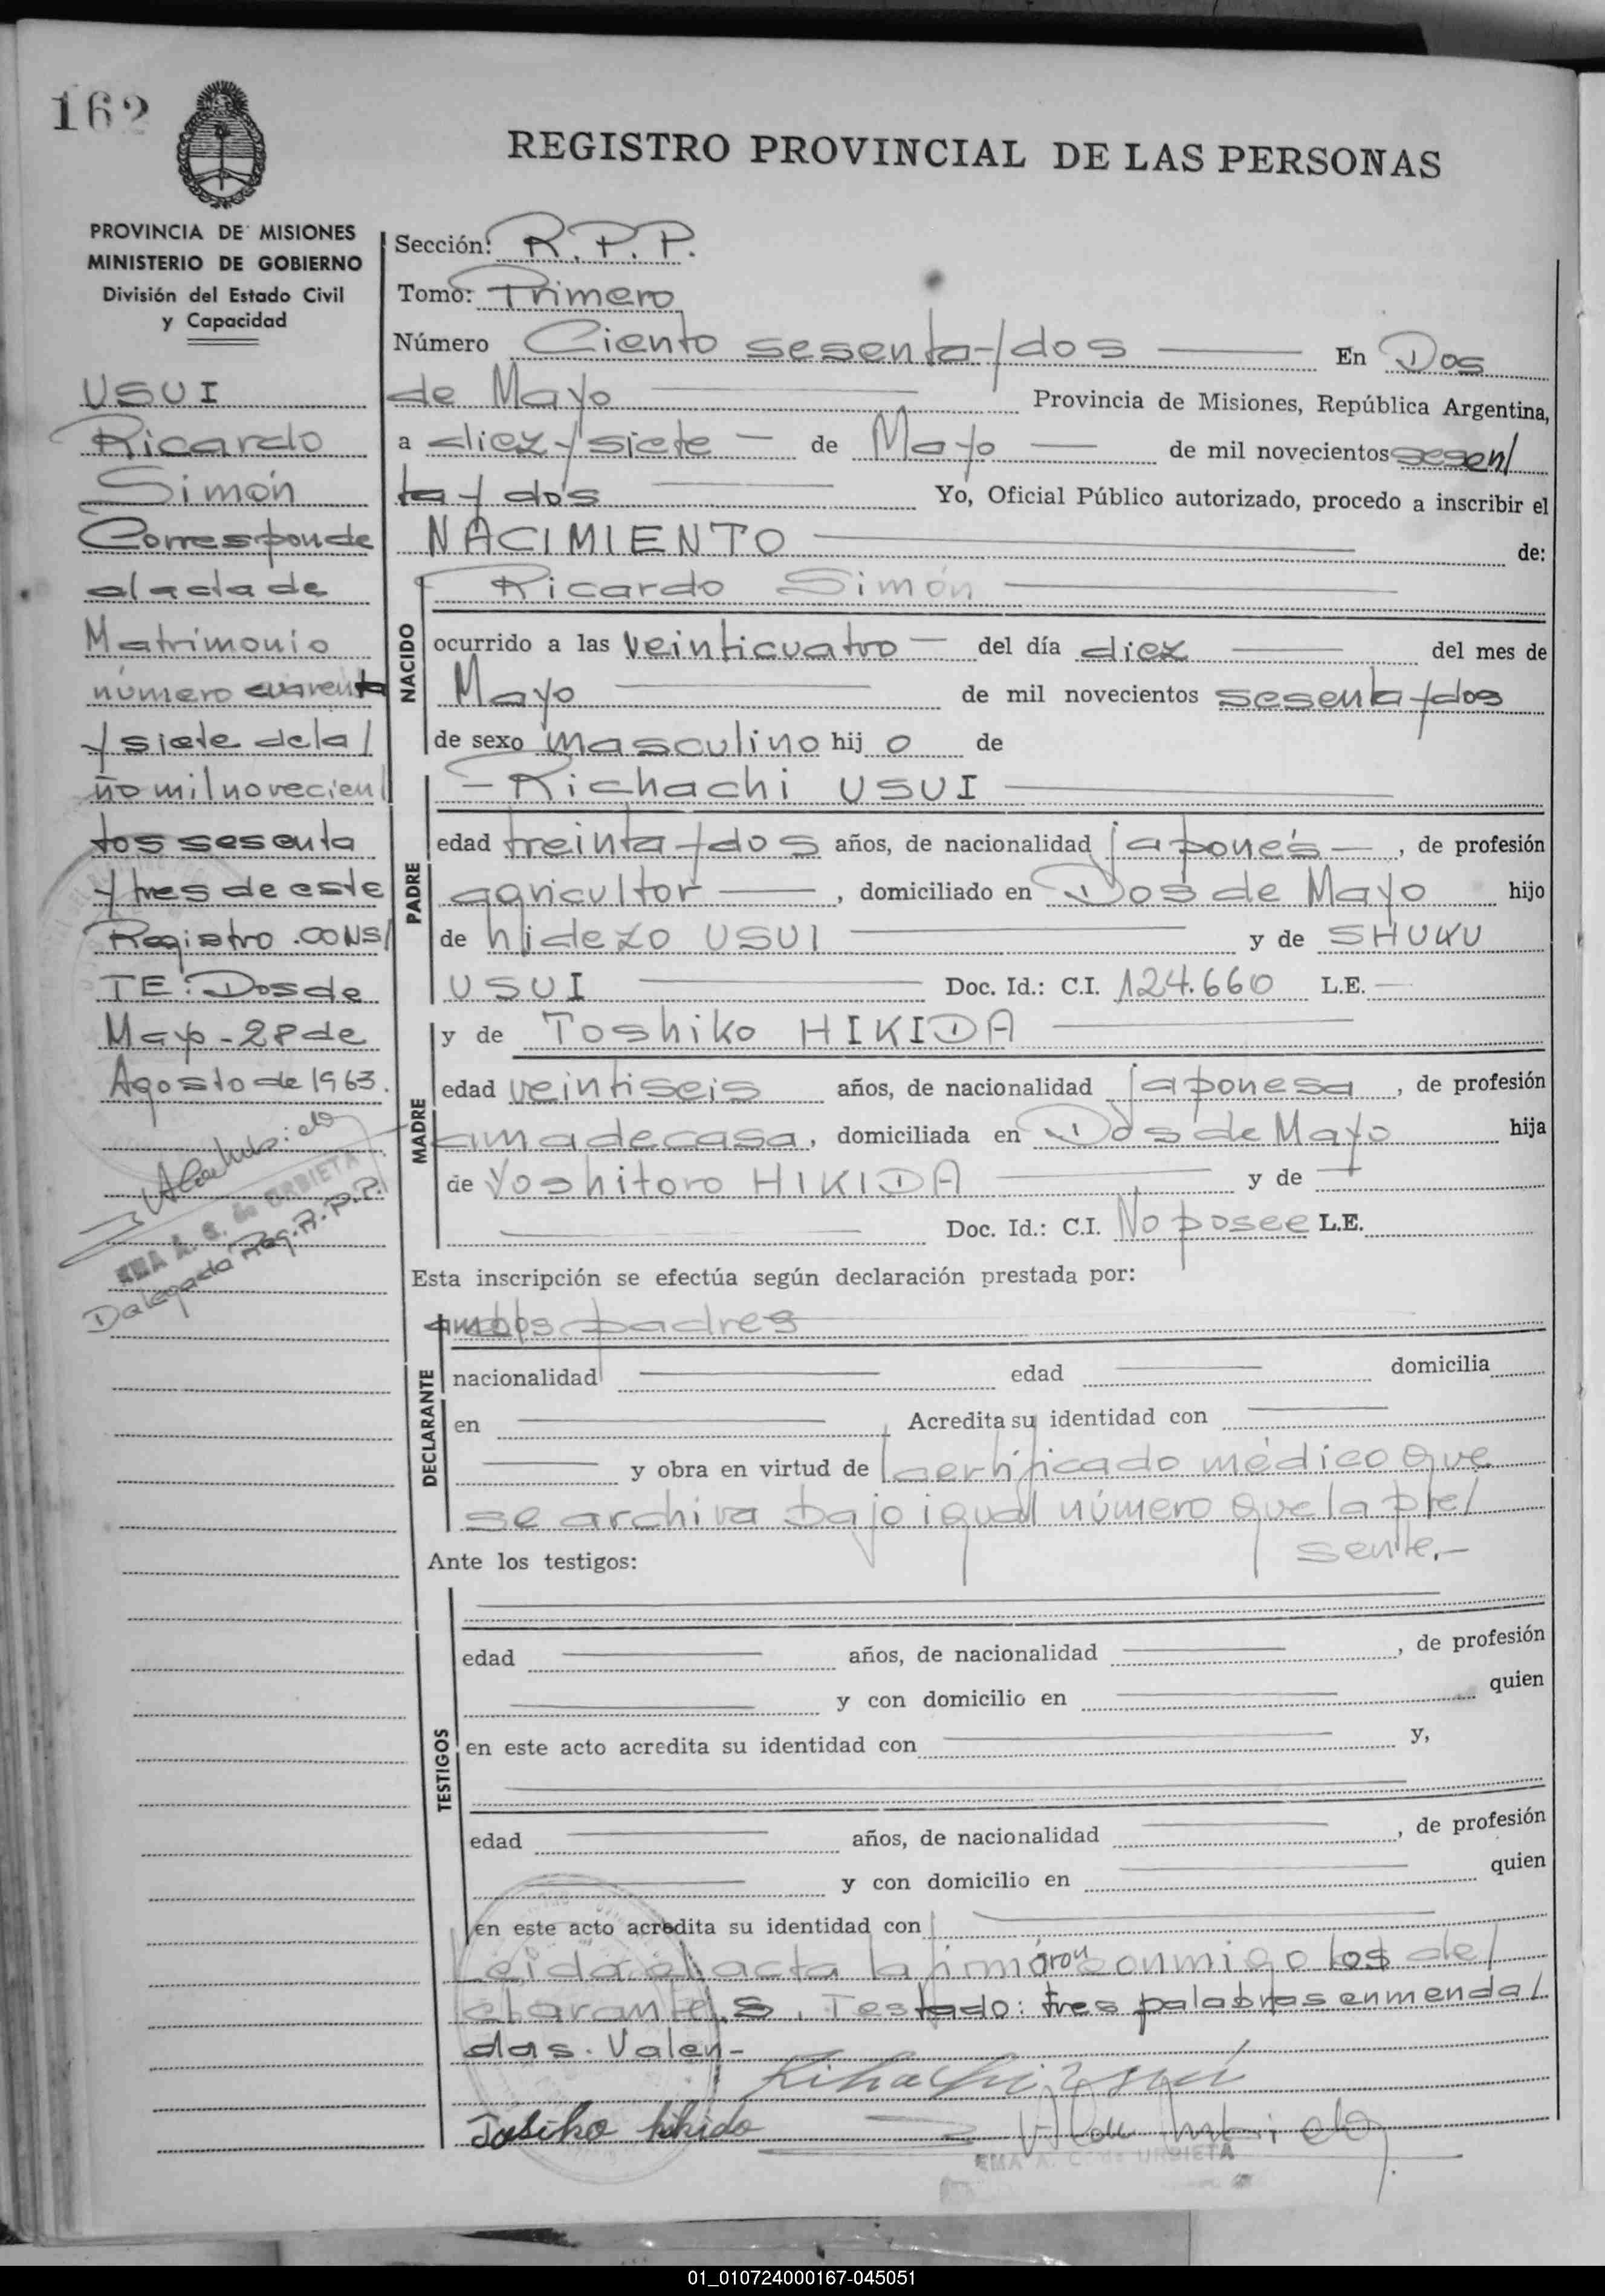 162
REGISTRO PROVINCIAL DE LAS PERSONAS
PROVINCIA DE MISIONES
MINISTERIO DE GOBIERNO
División del Estado Civil
y Capacidad
USUI
Ricardo
Simón
Corresponde
al acta de
Matrimonio
número cuarenta
y siete del a/
ño mil novecien/
tos sesenta
y tres de este
Registro. CONS/
TE: Dos de
Mayo - 28 de
Agosto de 1963.
EMA A. S. de URBIETA
Delegada Reg. R.P.P.
Sección: R.P.P.
Tomo: Primero
Número Ciento sesenta y dos En Dos
de Mayo Provincia de Misiones, República Argentina,
a diez y siete de Mayo de mil novecientos sesen/
ta y dos Yo, Oficial Público autorizado, procedo a inscribir el
NACIMIENTO de:
NACIDO
Ricardo Simón
ocurrido a las veinticuatro del día diez del mes de
Mayo de mil novecientos sesenta y dos
de sexo masculino hij o de
PADRE
Richachi USUI
edad treinta y dos años, de nacionalidad japonés, de profesión
agricultor, domiciliado en Dos de Mayo hijo
de hidezo USUI y de SHUKU
USUI Doc. Id.: C.I. 124.660 L.E.
MADRE
y de Toshiko HIKIDA
edad veintiseis años, de nacionalidad japonesa, de profesión
ama de casa, domiciliada en Dos de Mayo hija
de Yoshitoro HIKIDA y de
Doc. Id.: C.I. No posee L.E.
Esta inscripción se efectúa según declaración prestada por:
DECLARANTE
ambos padres
nacionalidad edad domicilia
en Acredita su identidad con
y obra en virtud de certificado médico que
se archiva bajo igual número que la pre/
sente.-
Ante los testigos:
TESTIGOS
edad años, de nacionalidad , de profesión
y con domicilio en quien
en este acto acredita su identidad con y,
edad años, de nacionalidad , de profesión
y con domicilio en quien
en este acto acredita su identidad con
Leida el acta la firmáron conmigo los de/
clarantes. Testado: tres palabras enmenda/
das. Valen-
Tosiko hikida
EMA A. C. de URBIETA
01_010724000167-045051